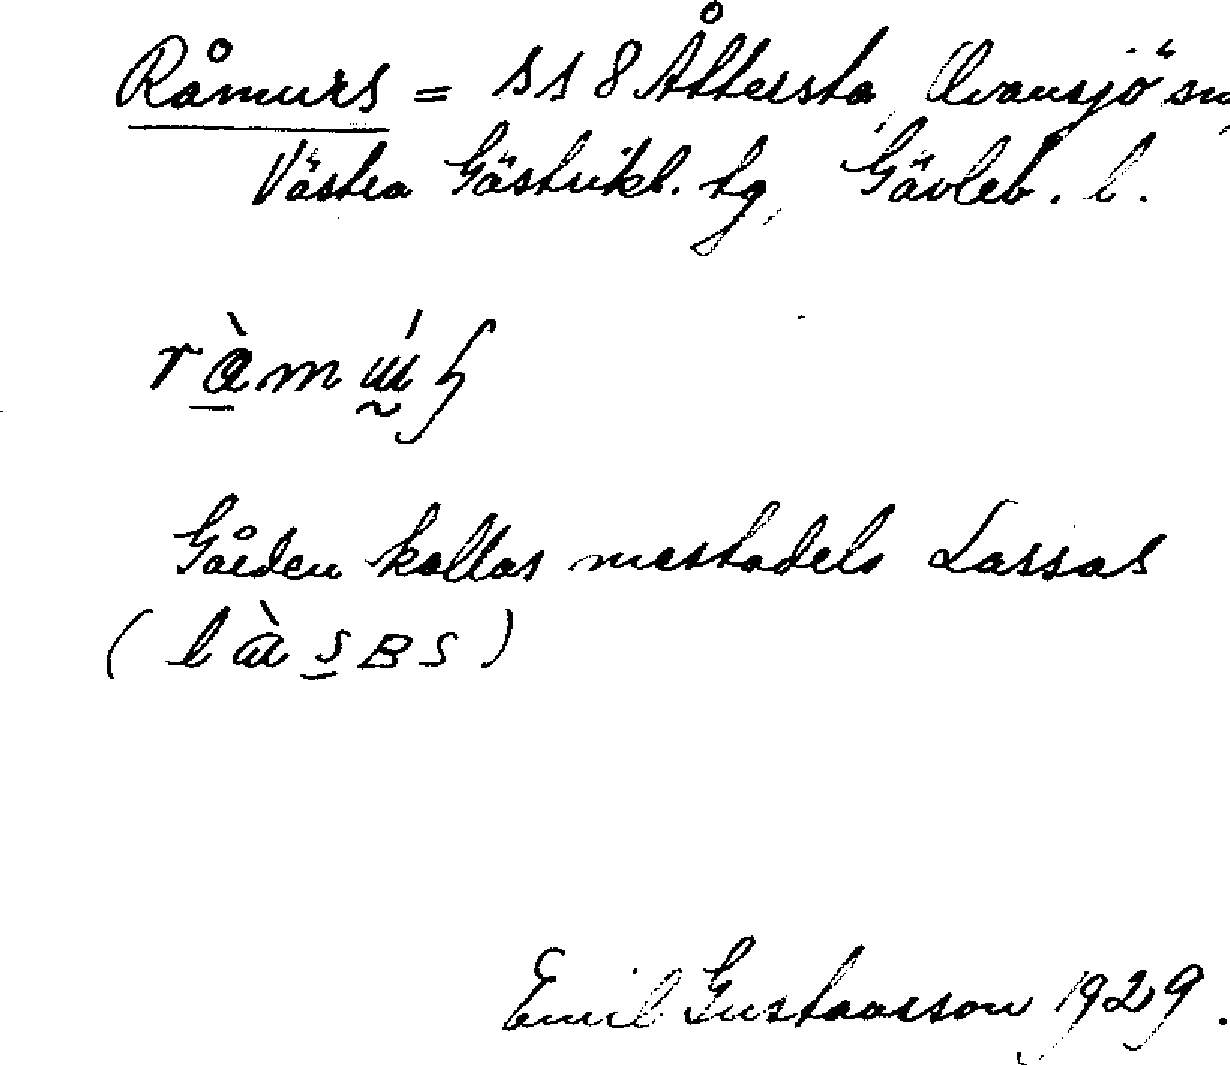 Råmurs = SS 8 Åttersta, Ovansjö sn,
Västra Gästrikl. tg, Gävleb. l.
Gården kallas mestadels Lassas
Emil Gustavsson 1929.